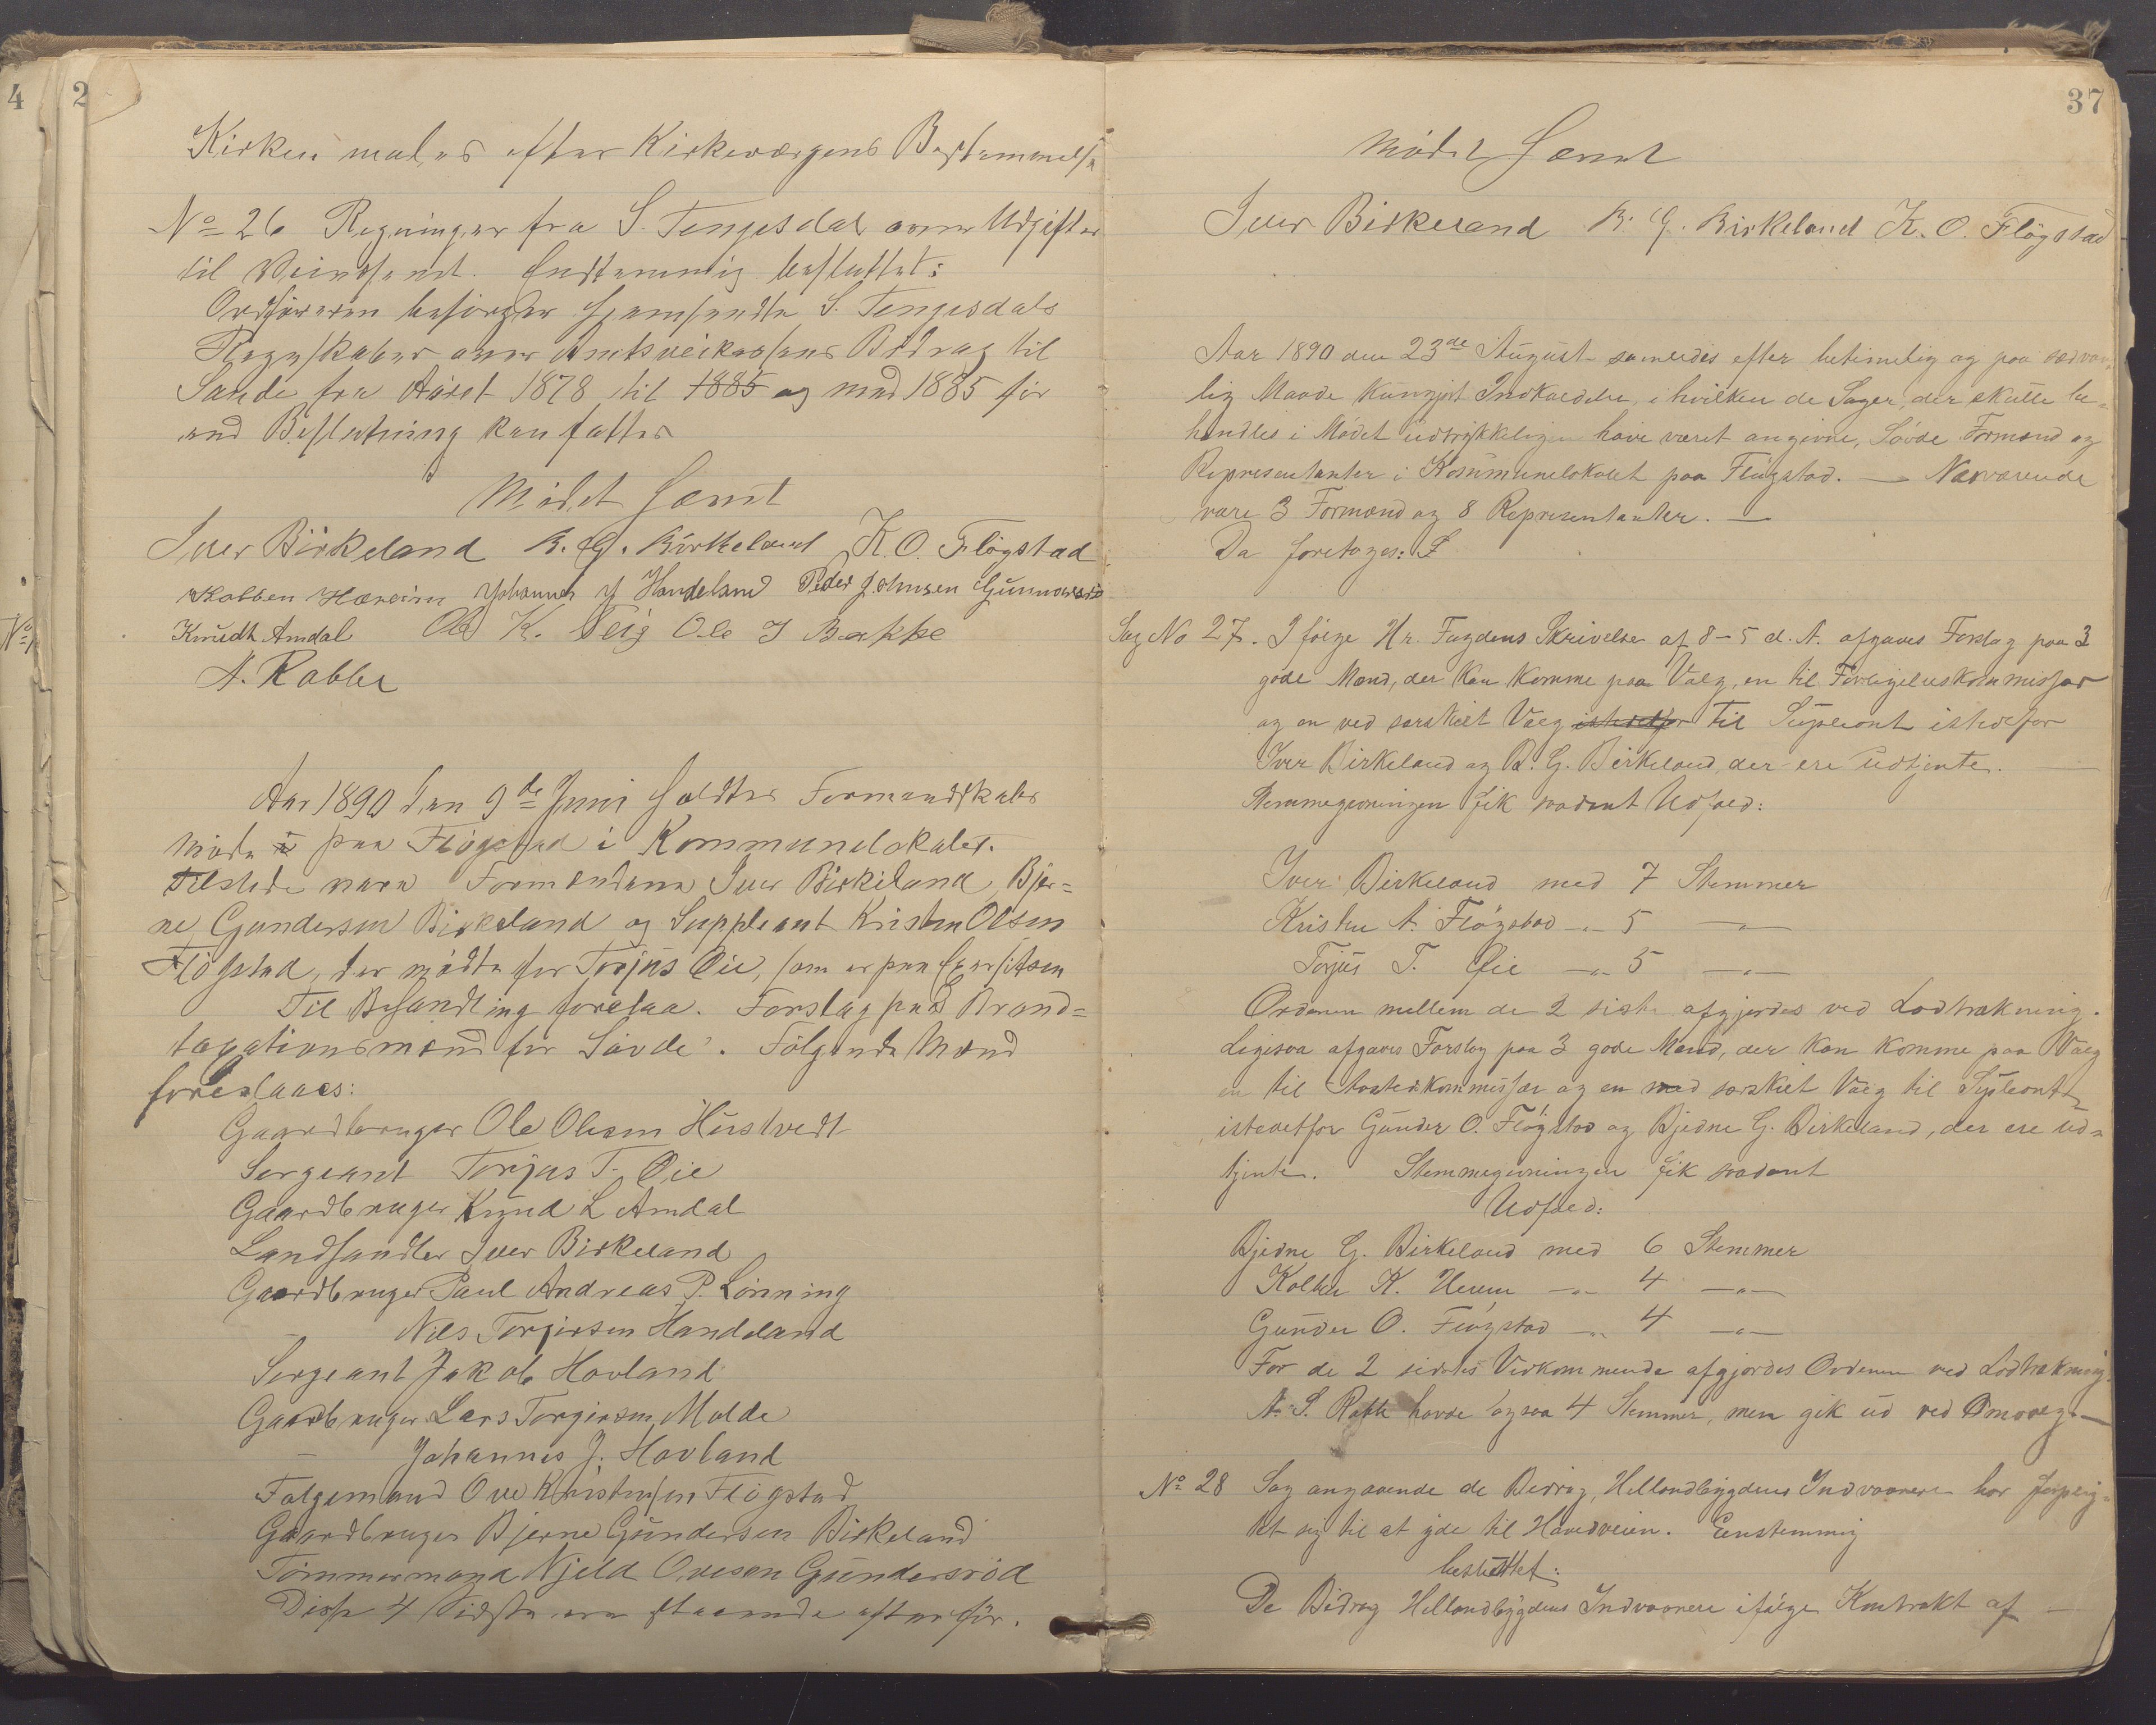 4
2
Kirken males efter Kirkeværgens Bestemmelse
No 26 Regninger fra S. Tengesdal over Udgifter
til Veivæsenet. Enstemmig besluttet:
Ordføreren besørger hjemsendte S. Tengesdals
Regnskaber over Amtsveikassens Bidrag til
Sande fra Aaret 1878 til 1885 og med 1885 før
end Beslutning kan fattes
Mødet hævet
Iver Birkeland B. G. Birkeland K. O. Fløgstad
Kolben Hæreim Johannes J Handeland Peder Johnsen Gunnarsrø
Knudt Amdal Ole K. Teig Ole J Bakke
N. Rabbe
No
Aar 1890 den 9de Juni holdtes Formandskabs
møde i paa Fløgstad i Kommunelokalet.
Tilstede vare Formændene Iver Birkeland, Bjer=
ne Gundersen Birkeland og Suppleant Kristen Olsen
Fløgstad, der mødte for Torjus Øie, som er paa Exersitsen
Til Behandling forelaa. Forslag paa Brand=
taxationsmænd for Søvde. Følgende Mænd
foreslaaes:
Gaardbruger Ole Olesen Hustvedt
Sergeant Torjus T. Øie
Gaardbruger Knud L Amdal
Landhandler Iver Birkeland
Gaardbruger Paul Andreas P. Lønning
— Nils Torgersen Handeland
Sergeant Jakob Hovland
Gaardbruger Lars Torgersen Molde
— Johannes J. Hovland
Følgemand Ove Kristensen Fløgstad
Gaardbruger Bjerne Gundersen Birkeland
Tømmermand Kjeld Ovesen Gundersrød
Disse 4 sidste ere staaende efter før.
37
Mødet hævet
Iver Birkeland B. G. Birkeland K. O. Fløgstad
Aar 1890 den 23de August samledes efter betimelig og paa sedvan
lig Maade kungjort Indkaldelse, i hvilken de Sager, der skulle be=
handles i Mødet udtrykkeligen have været angivne, Søvde Formænd og
Representanter i Kommunelokalet paa Fløgstad. — Nærværende
vare 3 Formænd og 8 Representanter. —
Da foretoges:
Sag No 27. Ifølge Hr. Fogdens Skrivelse af 8-5 d. A. afgaves Forslag paa 3
gode Mænd, der kan komme paa Valg, en til Forligelseskommissær
og en ved særskilt Valg istedetfor til Supleant istedefor
Iver Birkeland og B. G. Birkeland, der ere udtjente.
Stemmegivningen fik saadant Udfald:
Iver Birkeland med 7 Stemmer
Kristen A. Fløgstad -"- 5 -"-
Torjus T. Øie -"- 5 -"-
Ordenen mellem de 2 siste afgjordes ved Lodtrækning.
Ligesaa afgaves Forslag paa 3 gode Mænd, der kan komme paa Valg
en til kommissær og en med særskilt Valg til Supleant
istedetfor Gunder O. Fløgstad og Bjedne G. Birkeland, der ere ud=
tjente. Stemmegivningen fik saadant
Udfald:
Bjedne G. Birkeland med 6 Stemmer
Kolben K. Herem -"- 4 -"-
Gunder O. Fløgstad -"- 4 -"-
For de 2 sidstes Vedkommende afgjordes Ordenen ved Lodtrækning
N. S. Rabbe havde ogsaa 4 Stemmer, men gik ud ved Omvalg. —
No 28 Sag angaaende de Bidrag, Hellandbygdens Indvaanere har forplig=
tet sig til at yde til Hovedveien. Eenstemmig
besluttet:
De Bidrag Hellandbygdens Indvaanere ifølge Kontrakt af —